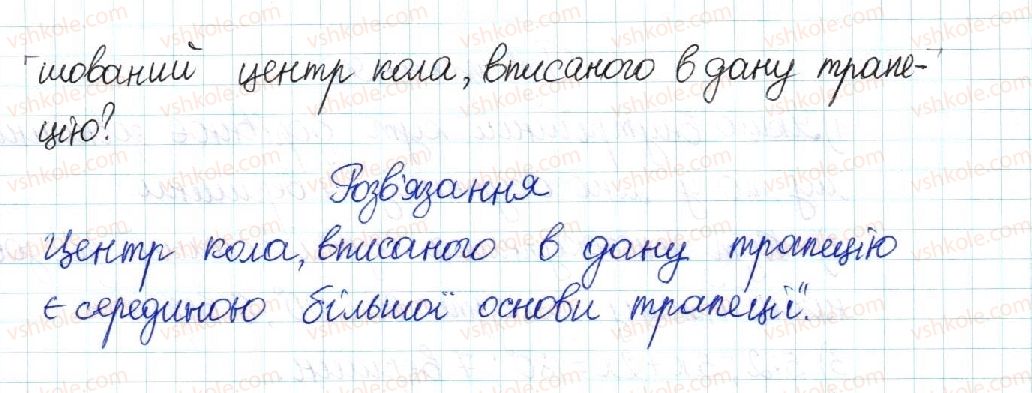 шований центр кола, вписаного в дану трапе-
цію?
Розв'язання
Центр кола, вписаного в дану трапецію
є серединою більшої основи трапеції.